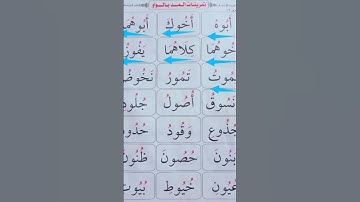 تمرينات المد بالواو
أَبُوهُ أَخُوكَ أَبُوهُمَا
خُوهُمَا كِلَاهُمَا يَفُوزُ
مُوتُ تَمُورُ نَخُوضُ
نَسُوقُ أُصُولُ جُلُودُ
جُذُوعِ وَقُودُ حُدُودُ
بَنُونَ حُصُونَ ظُنُونَ
عُيُونَ خُيُوطِ بُيُوتَ